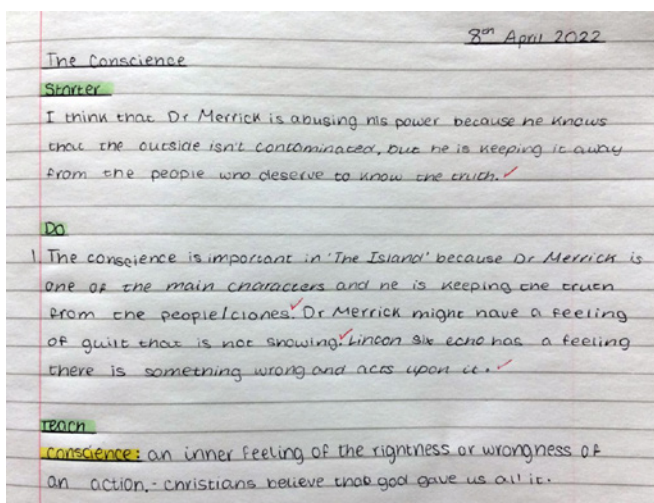 8th April 2022
The Conscience
Starter
I think that Dr Merrick is abusing his power because he knows
that the outside isn't contaminated, but he is keeping it away
from the people who deserve to know the truth.
Do
1. The conscience is important in 'The Island' because Dr Merrick is
one of the main characters and he is keeping the truth
from the people/clones. Dr Merrick might have a feeling
of guilt that is not showing. Lincon Six echo has a feeling
there is something wrong and acts upon it.
Teach
Conscience: an inner feeling of the rightness or wrongness of
an action. - christians believe that god gave us all it.